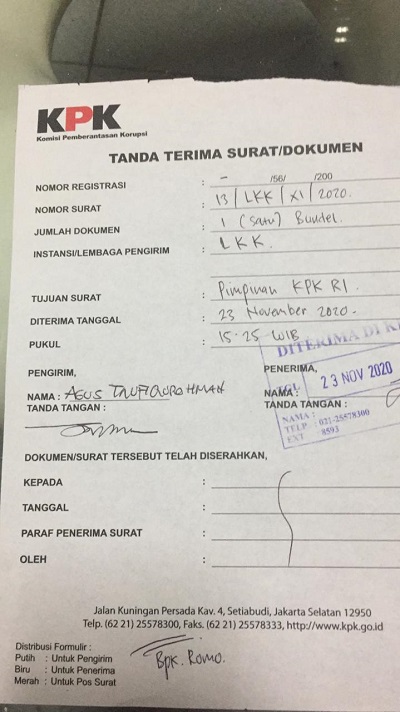 KPK
Komisi Pemberantasan Korupsi
TANDA TERIMA SURAT/DOKUMEN
NOMOR REGISTRASI : - /56/ /200
NOMOR SURAT : 13/LKK/XI/2020.
JUMLAH DOKUMEN : 1 (satu) Bundel.
INSTANSI/LEMBAGA PENGIRIM : LKK.
TUJUAN SURAT : Pimpinan KPK RI.
DITERIMA TANGGAL : 23 November 2020.
PUKUL : 15.25 WIB
DITERIMA DI
PENGIRIM, PENERIMA,
TGL 23 NOV 2020
NAMA : AGUS NAMA :
TANDA TANGAN : TANDA TANGAN :
NAMA :
TELP : 021-25578300
EXT : 8593
DOKUMEN/SURAT TERSEBUT TELAH DISERAHKAN,
KEPADA :
TANGGAL :
PARAF PENERIMA SURAT :
OLEH :
Jalan Kuningan Persada Kav. 4, Setiabudi, Jakarta Selatan 12950
Telp. (62 21) 25578300, Faks. (62 21) 25578333, http://www.kpk.go.id
Distribusi Formulir :
Putih : Untuk Pengirim
Biru : Untuk Penerima
Merah : Untuk Pos Surat
Bpk. Romo.